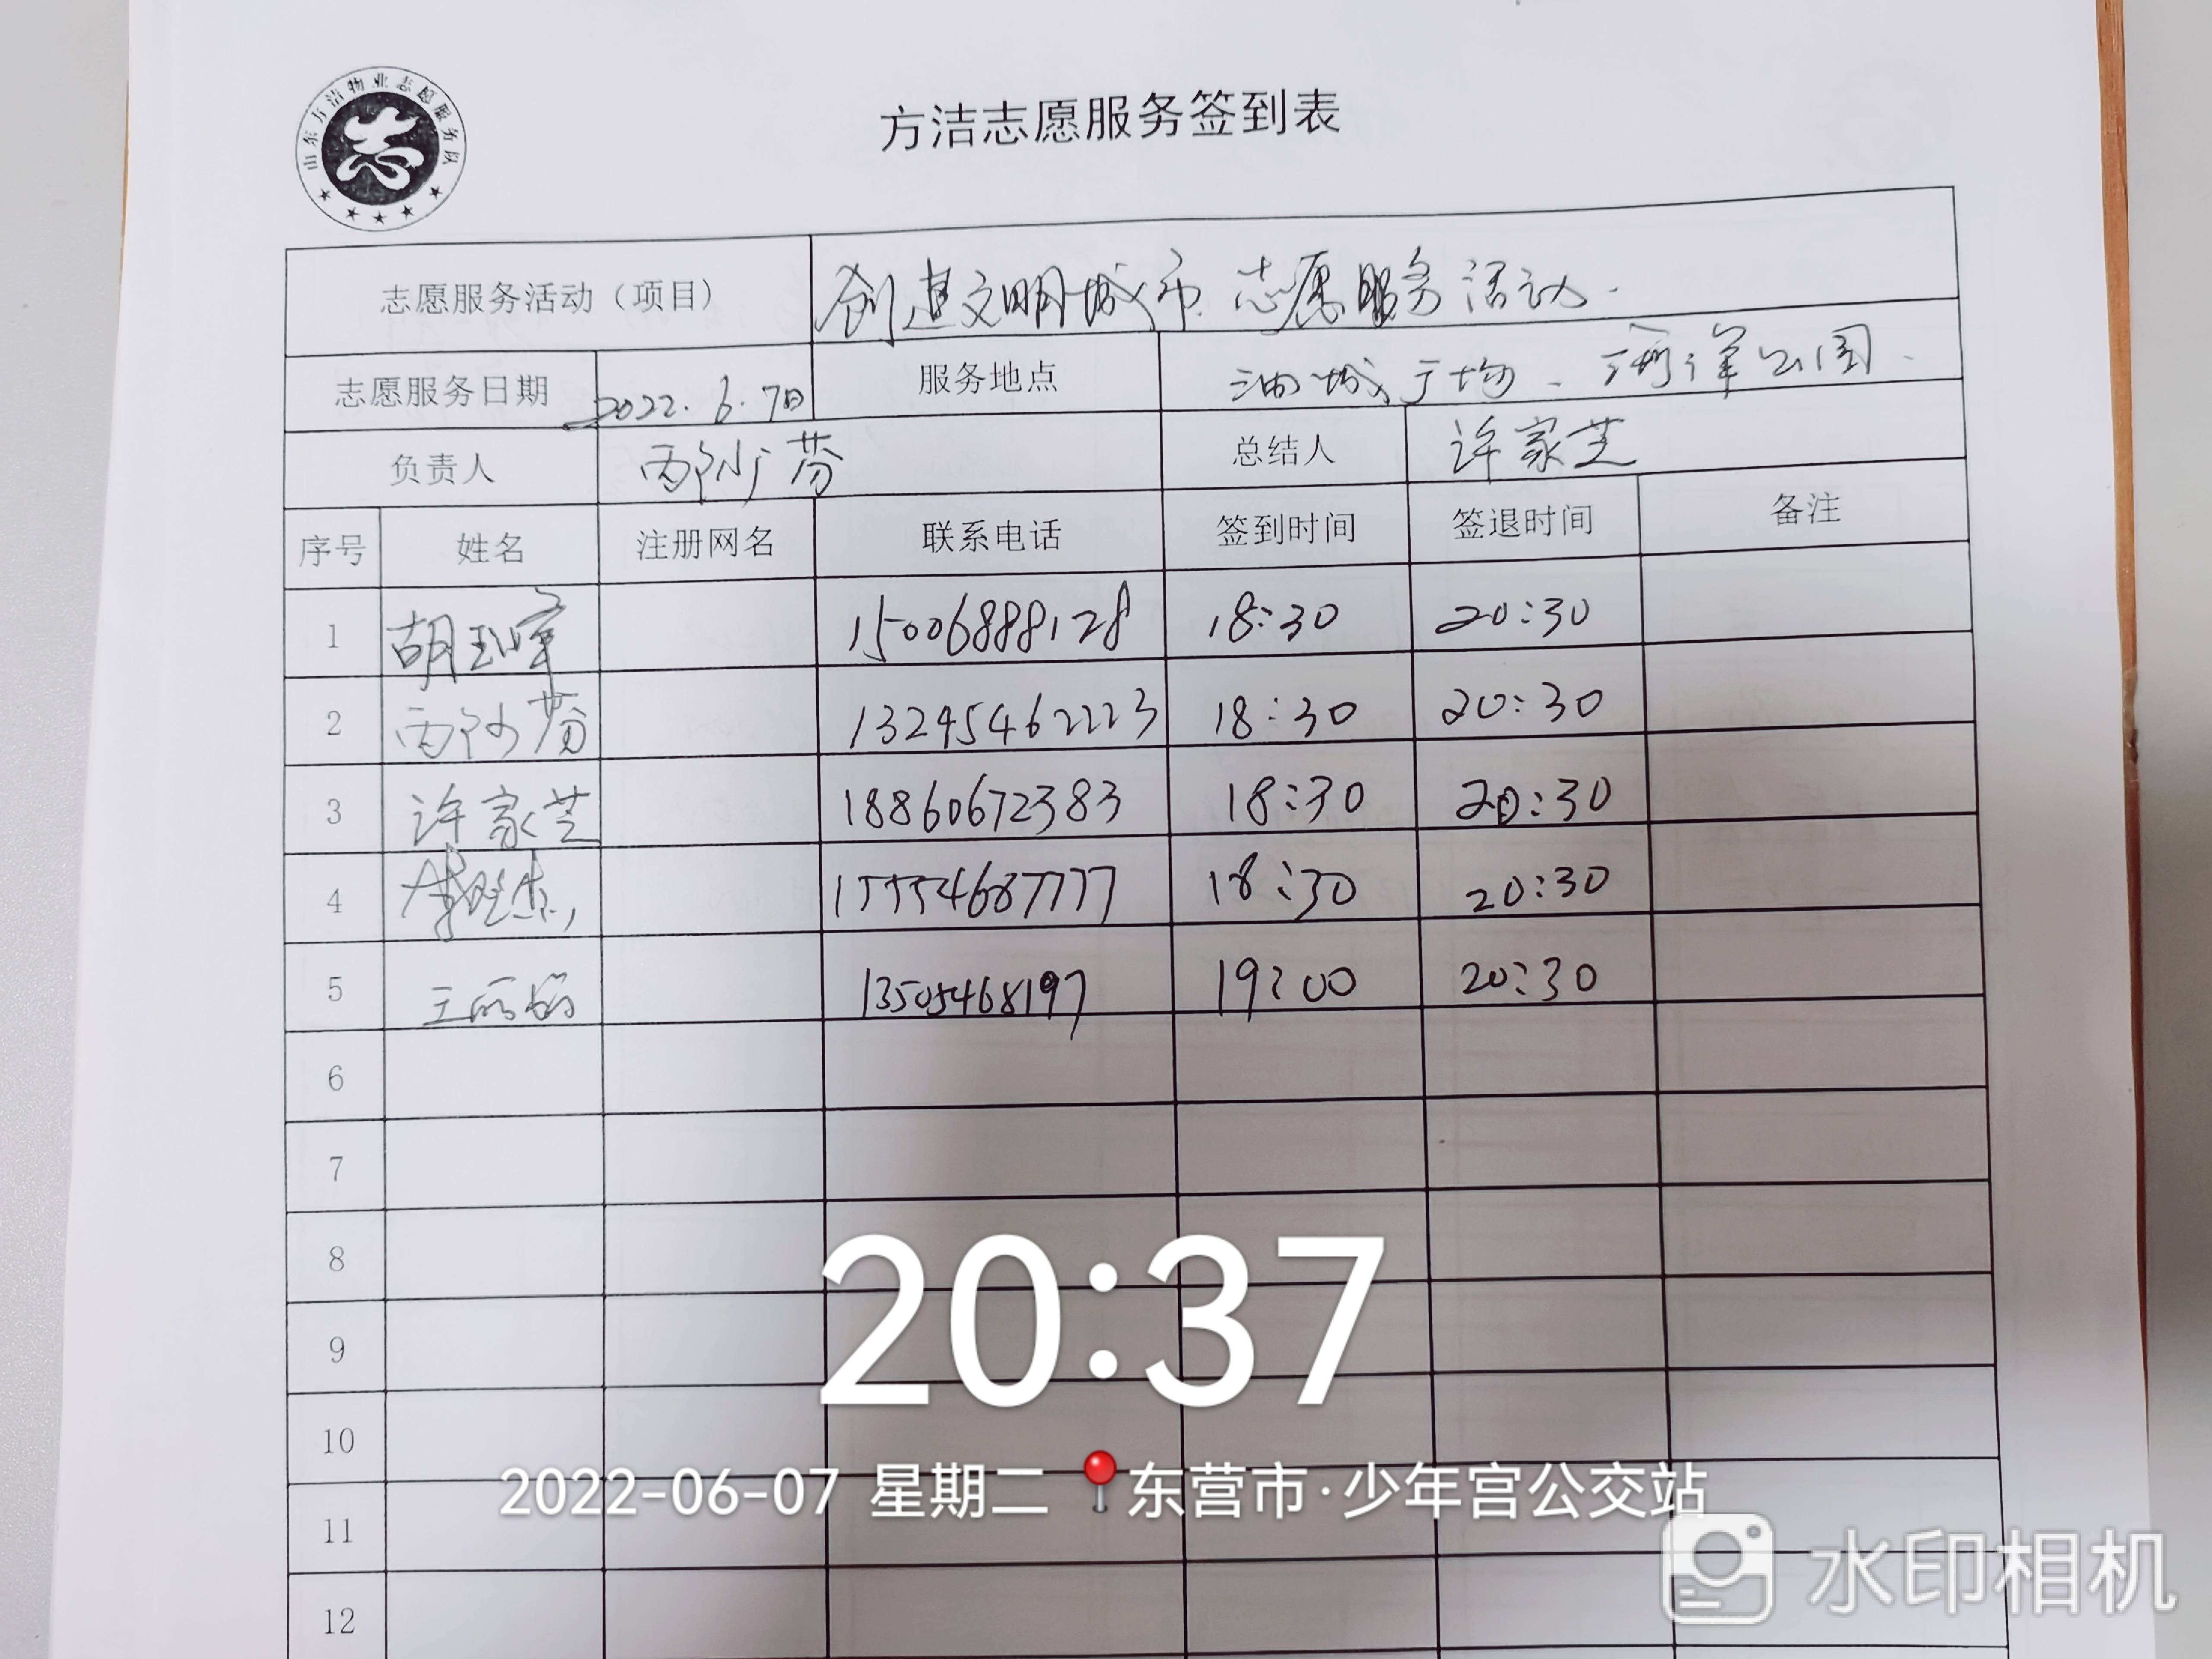 山东方洁物业志愿服务队
志
方洁志愿服务签到表
志愿服务活动（项目） 创建文明城市志愿服务活动.
志愿服务日期 2022.6.7日 服务地点 油城广场、海洋公园、
负责人 芬 总结人 许家芝
序号 姓名 注册网名 联系电话 签到时间 签退时间 备注
1 胡 15006888128 18:30 20:30
2 芬 13295462223 18:30 20:30
3 许家芝 18860672383 18:30 20:30
4 15554687777 18:30 20:30
5 王丽娟 13505468197 19:00 20:30
6
7
8
20:37
9
10
2022-06-07 星期二 东营市·少年宫公交站
11
水印相机
12